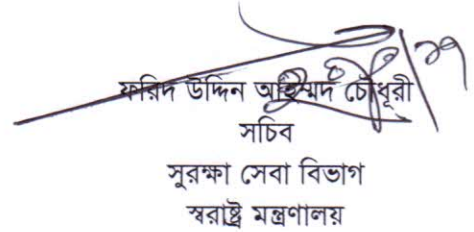 ফরিদ উদ্দিন আহম্মদ চৌধুরী
সচিব
সুরক্ষা সেবা বিভাগ
স্বরাষ্ট্র মন্ত্রণালয়